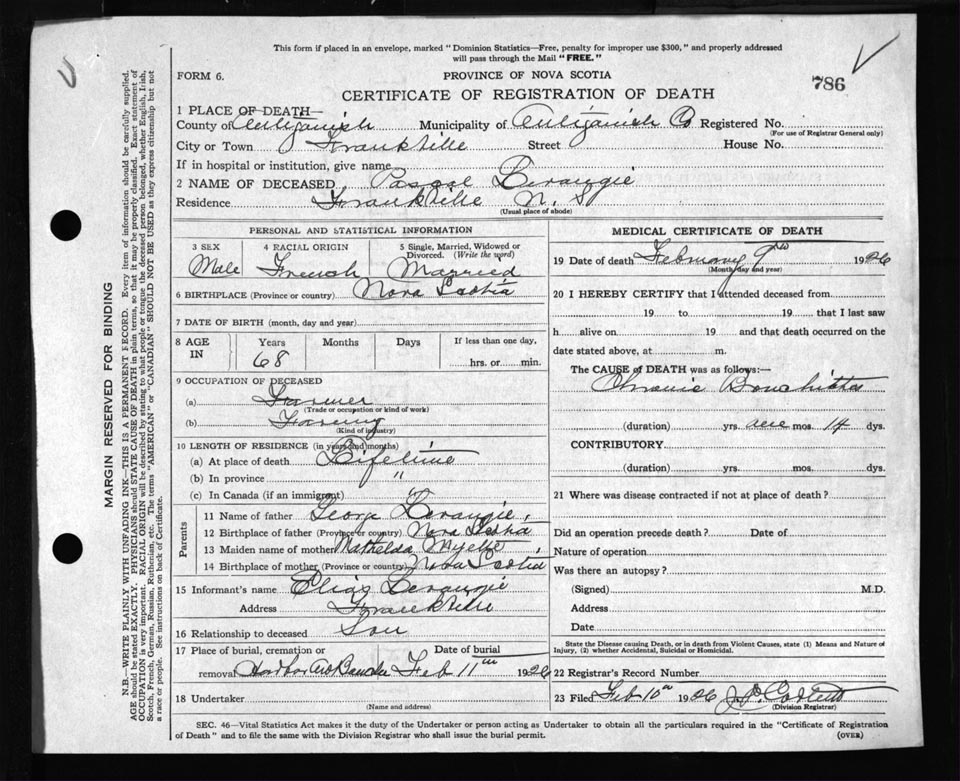 This form if placed in an envelope, marked "Dominion Statistics—Free, penalty for improper use $300," and properly addressed
will pass through the Mail "FREE."
FORM 6.
PROVINCE OF NOVA SCOTIA
786
CERTIFICATE OF REGISTRATION OF DEATH
1 PLACE OF DEATH—
County of Antiganish Municipality of Antiganish Co Registered No.
(For use of Registrar General only)
City or Town Frankville Street House No.
If in hospital or institution, give name
2 NAME OF DECEASED Pascal Berangie
Residence Frankville N. S.
(Usual place of abode)
PERSONAL AND STATISTICAL INFORMATION
3 SEX 4 RACIAL ORIGIN 5 Single, Married, Widowed or Divorced. (Write the word)
Male French Married
6 BIRTHPLACE (Province or country) Nova Scotia
7 DATE OF BIRTH (month, day and year)
8 AGE IN Years Months Days If less than one day,
68 hrs. or min.
9 OCCUPATION OF DECEASED
(a) Farmer
(Trade or occupation or kind of work)
(b) Farming
(Kind of industry)
10 LENGTH OF RESIDENCE (in years and months)
(a) At place of death Lifetime
(b) In province "
(c) In Canada (if an immigrant) "
Parents
11 Name of father George Berangie
12 Birthplace of father (Province or country) Nova Scotia
13 Maiden name of mother Mathelda
14 Birthplace of mother (Province or country) Nova Scotia
15 Informant's name Elias Berangie
Address Frankville
16 Relationship to deceased Son
17 Place of burial, cremation or Date of burial
removal Harbor Au Bouche Feb 11th 1926
18 Undertaker
(Name and address)
MEDICAL CERTIFICATE OF DEATH
19 Date of death February 9th 1926
(Month day and year)
20 I HEREBY CERTIFY that I attended deceased from
19 to 19 that I last saw
h alive on 19 and that death occurred on the
date stated above, at m.
The CAUSE of DEATH was as follows:—
Chronic Bronchittes
(duration) yrs. one mos. 14 dys.
CONTRIBUTORY
(duration) yrs. mos. dys.
21 Where was disease contracted if not at place of death?
Did an operation precede death? Date of
Nature of operation
Was there an autopsy?
(Signed) M.D.
Address
Date
State the Disease causing Death, or in death from Violent Causes, state (1) Means and Nature of
Injury, (2) whether Accidental, Suicidal or Homicidal.
22 Registrar's Record Number
23 Filed Feb 10th 1926
(Division Registrar)
SEC. 46—Vital Statistics Act makes it the duty of the Undertaker or person acting as Undertaker to obtain all the particulars required in the "Certificate of Registration
of Death" and to file the same with the Division Registrar who shall issue the burial permit.
(OVER)
MARGIN RESERVED FOR BINDING
N.B.—WRITE PLAINLY WITH UNFADING INK—THIS IS A PERMANENT RECORD. Every item of information should be carefully supplied.
AGE should be stated EXACTLY. PHYSICIANS should STATE CAUSE OF DEATH in plain terms, so that it may be properly classified. Exact statement of
OCCUPATION is very important. RACIAL ORIGIN will be described by stating to what people or tongue the deceased person belonged, whether English, Irish,
Scotch, French, German, Russian, Ruthenian, etc. The terms "AMERICAN" or "CANADIAN" SHOULD NOT BE USED as they express citizenship but not
a race or people. See instructions on back of Certificate.